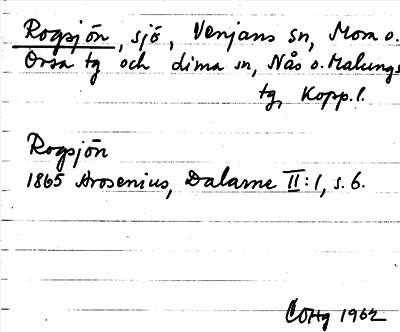 Rogsjön, sjö, Venjans sn, Mora o.
Orsa tg och Lima sn, Nås o. Malungs
tg, Kopp. l.
Rogsjön
1865 Arosenius, Dalarne II:1, s. 6.
1962